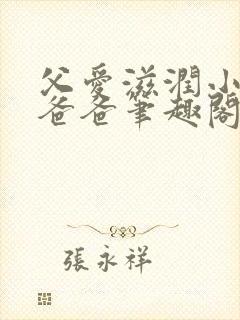 父愛滋潤小
爸爸筆趣閣
張永祥